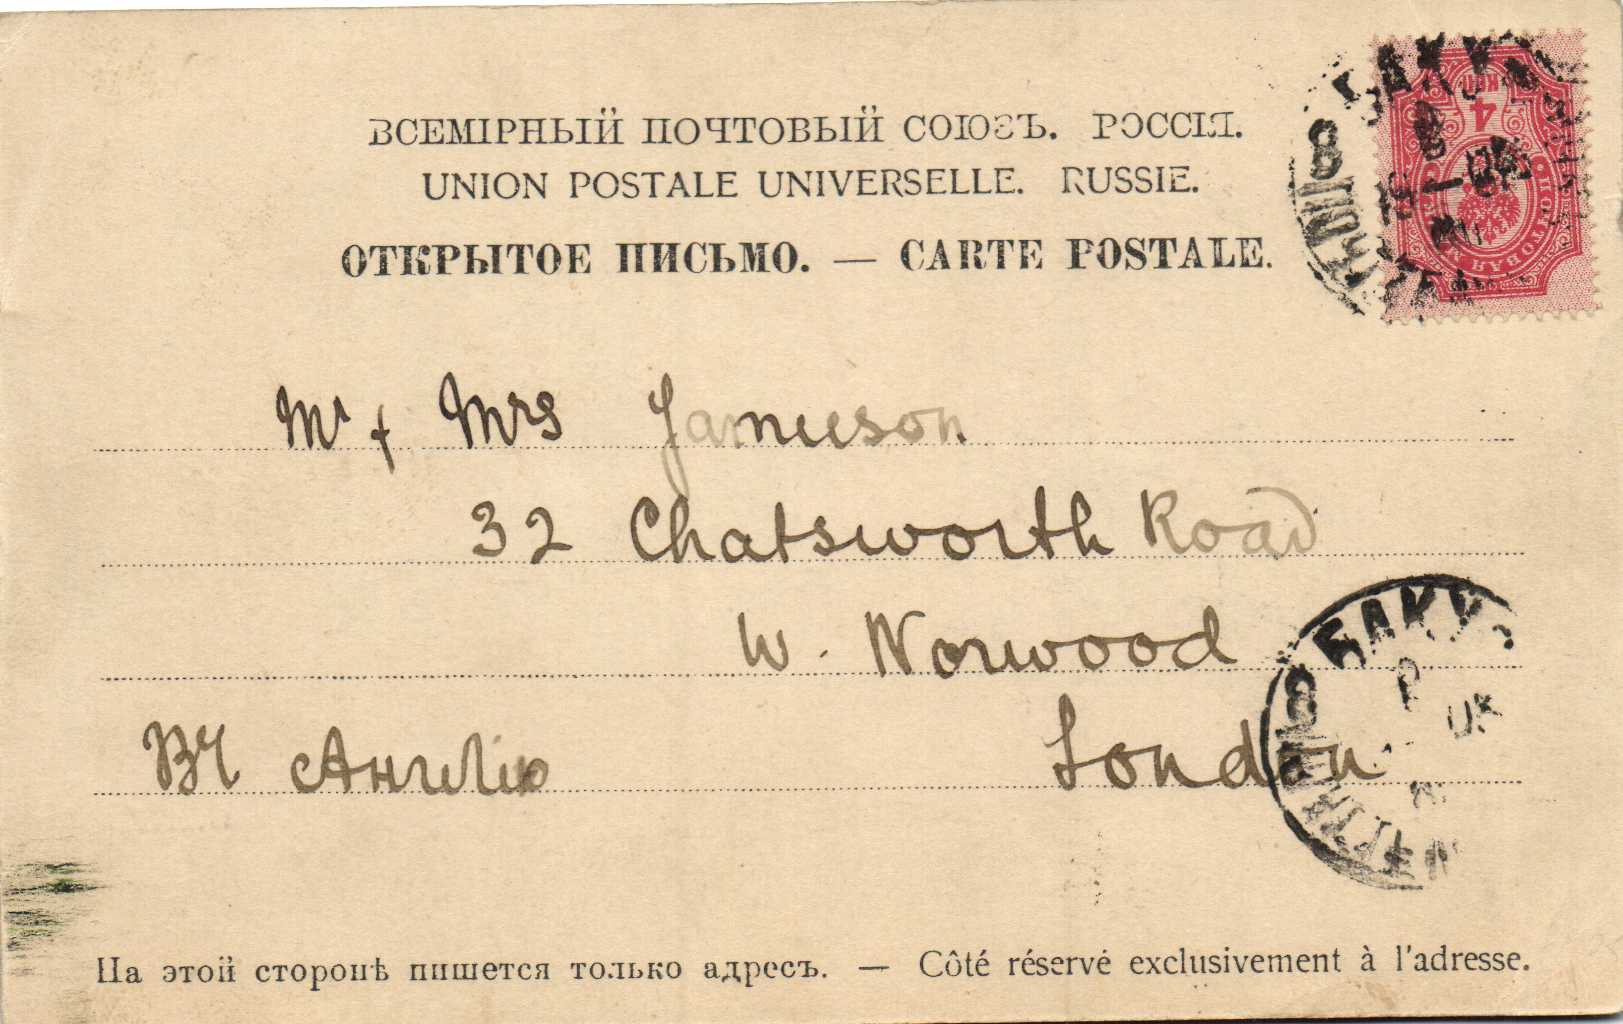 ВСЕМІРНЫЙ ПОЧТОВЫЙ СОЮЗЪ. РОССІЯ.
UNION POSTALE UNIVERSELLE. RUSSIE.
ОТКРЫТОЕ ПИСЬМО. — CARTE POSTALE.
БАКУ
4 КОП
ПОЧТОВАЯ МАРКА
Mr & Mrs Jamieson
32 Chatsworth Road
W. Norwood
Въ Англію
London
БАКУ
На этой сторонѣ пишется только адресъ. — Côté réservé exclusivement à l'adresse.